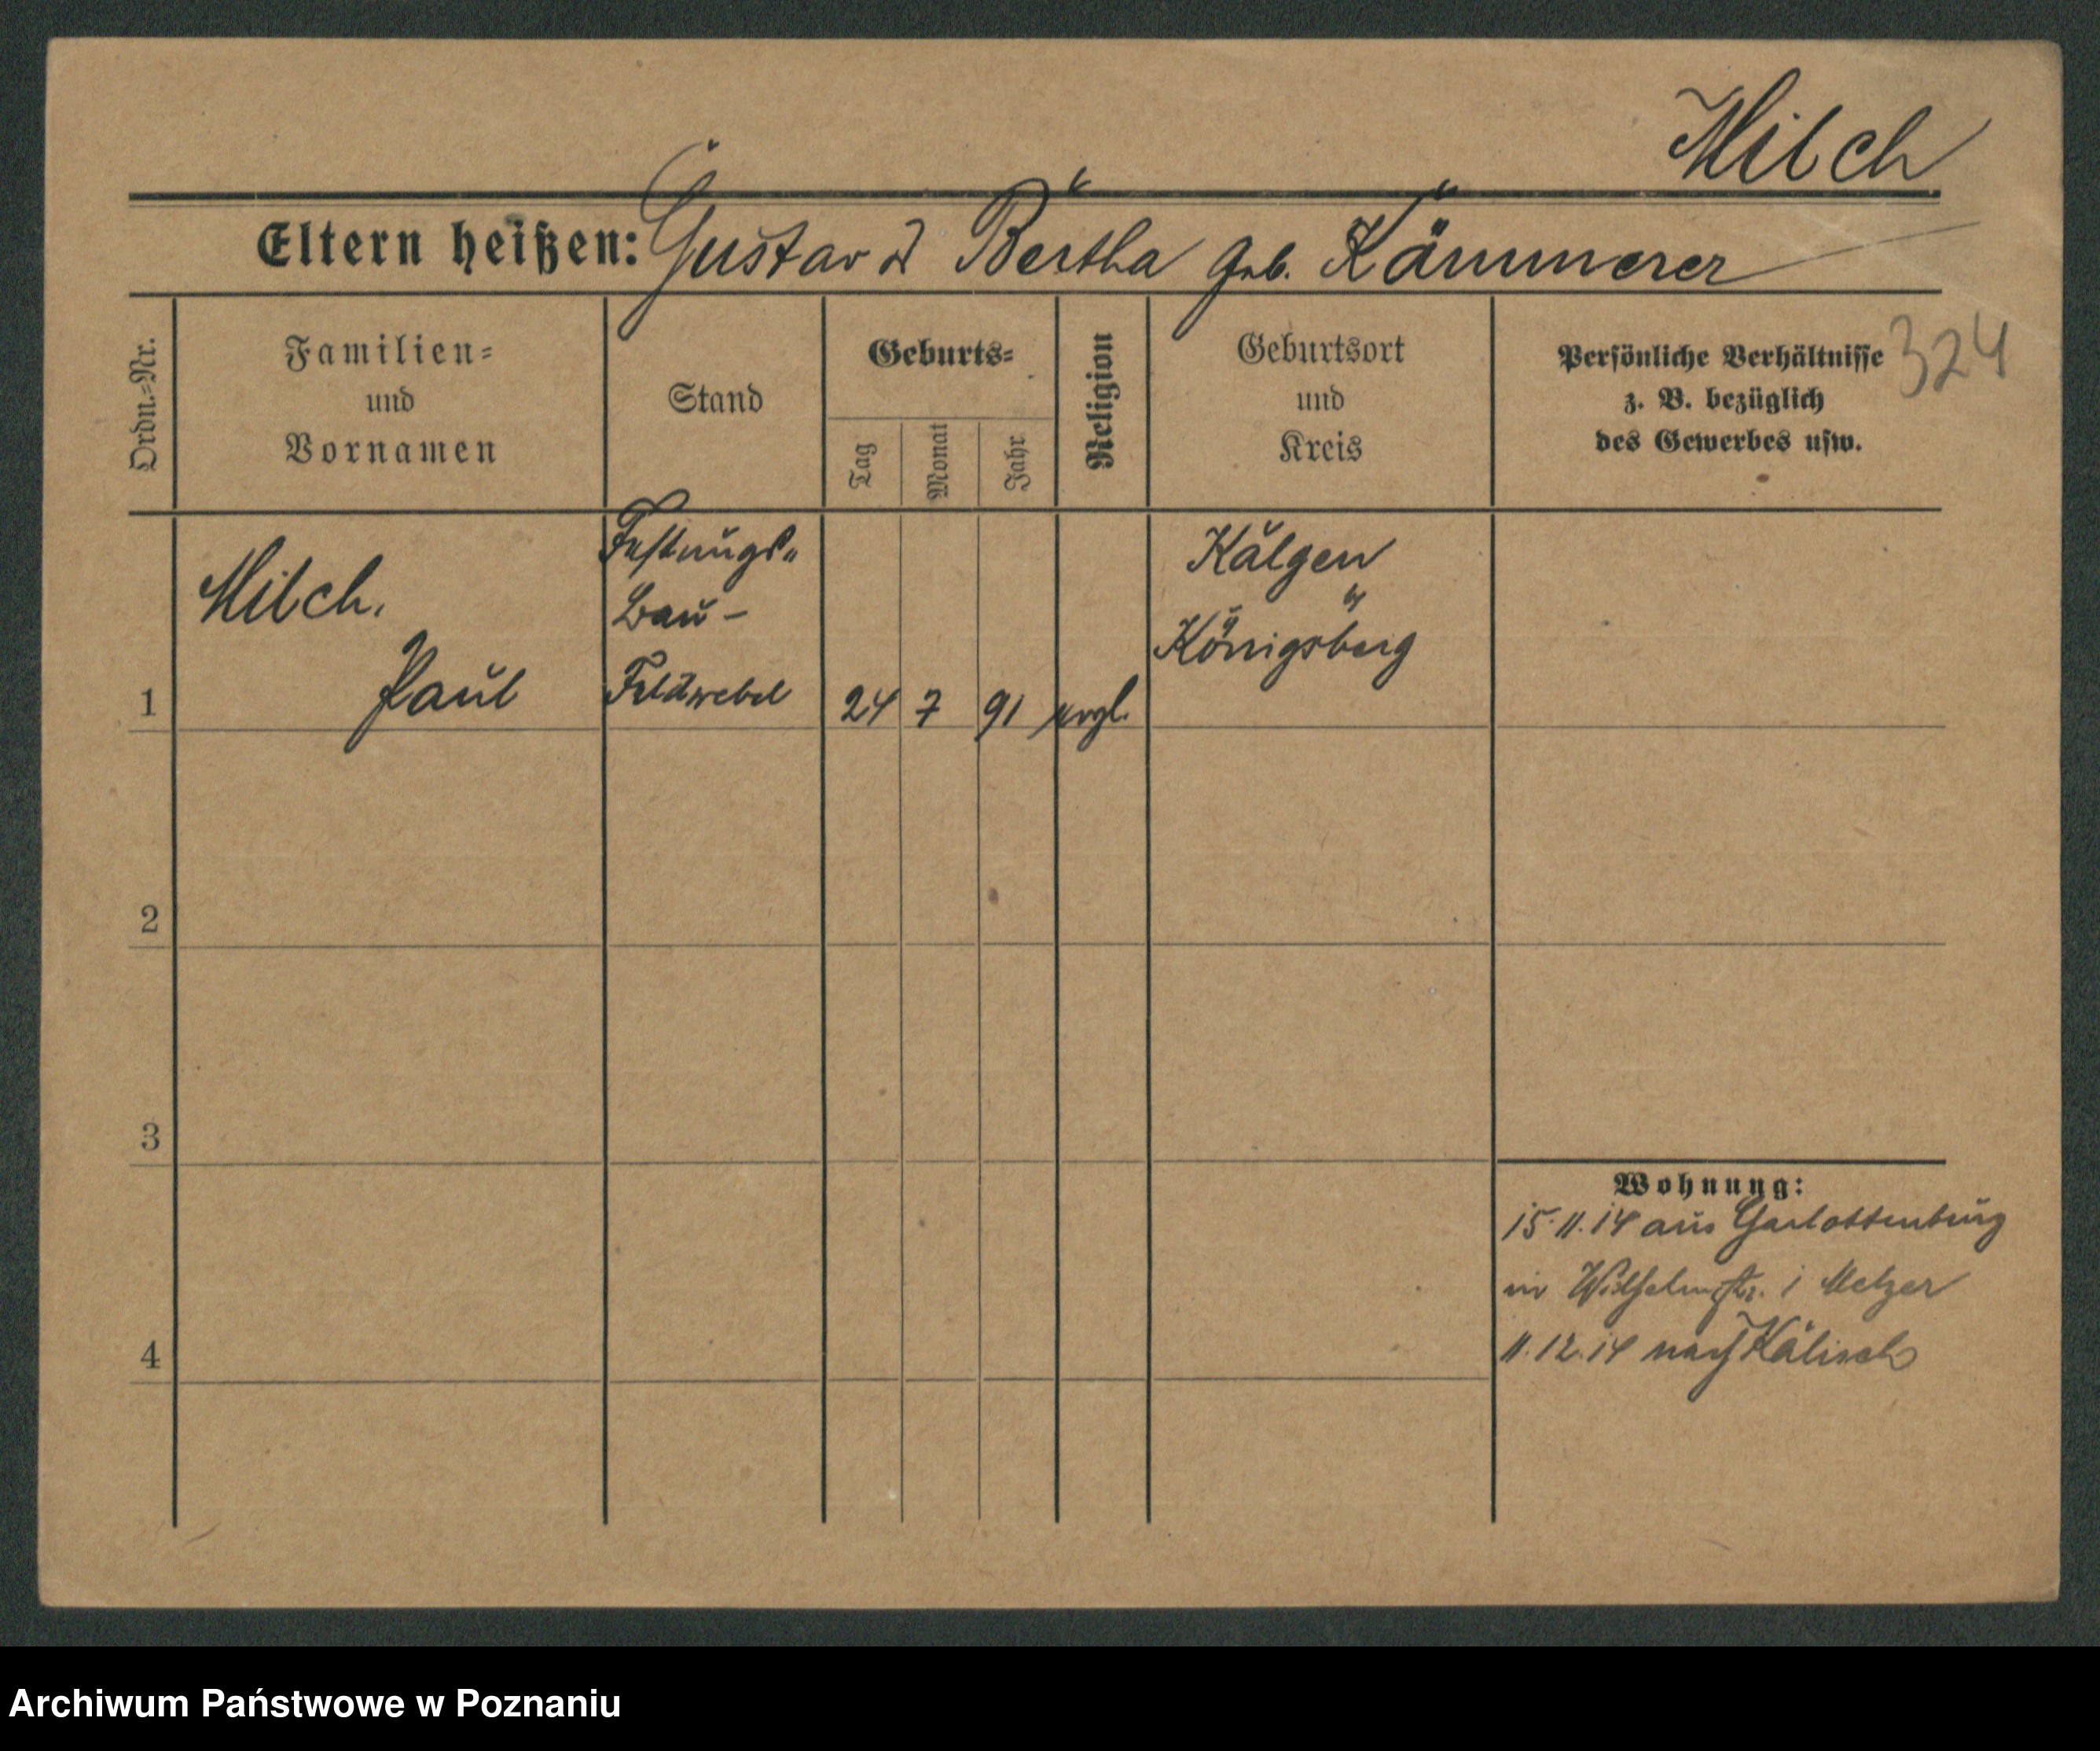 Milch
Eltern heißen: Gustav & Bertha geb. Kämmerer
324
Ordn.=Nr.
Familien=
und
Vornamen
Stand
Geburts=
Tag
Monat
Jahr
Religion
Geburtsort
und
Kreis
Persönliche Verhältnisse
z. B. bezüglich
des Gewerbes usw.
1
Milch.
Paul
Festungs-
Bau-
Feldwebel
24
7
91
evgl.
Kalgen
Königsberg
2
3
4
Wohnung:
15.11.14 aus Charlottenburg
in Wilhelmstr. Metzer
11.12.14 nach Kalisch
Archiwum Państwowe w Poznaniu